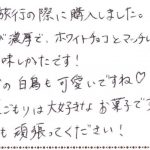 旅行の際に購入しました。
が濃厚で、ホワイトチョコとマッチし
味しかたです!
の白鳥も可愛いですね♡
ごもりは大好きなお菓子で
も頑張ってください!